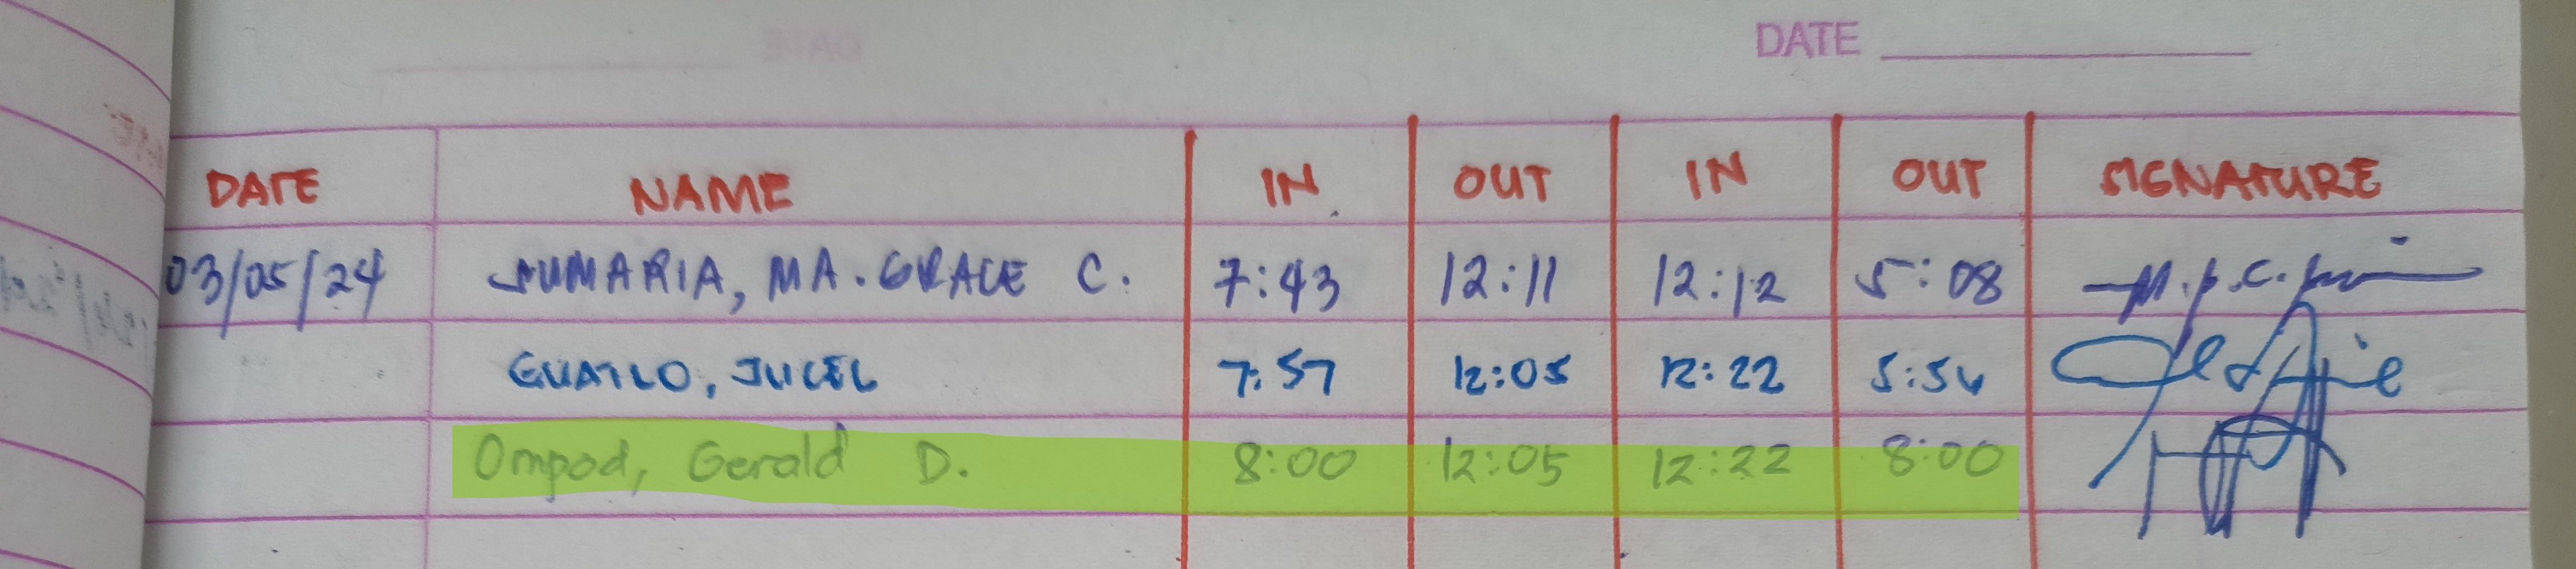 DATE
DATE NAME IN OUT IN OUT SIGNATURE
03/05/24 JUMARIA, MA. GRACE C. 7:43 12:11 12:12 5:08
GUATLO, JUCEL 7:57 12:05 12:22 5:54
Ompod, Gerald D. 8:00 12:05 12:22 8:00